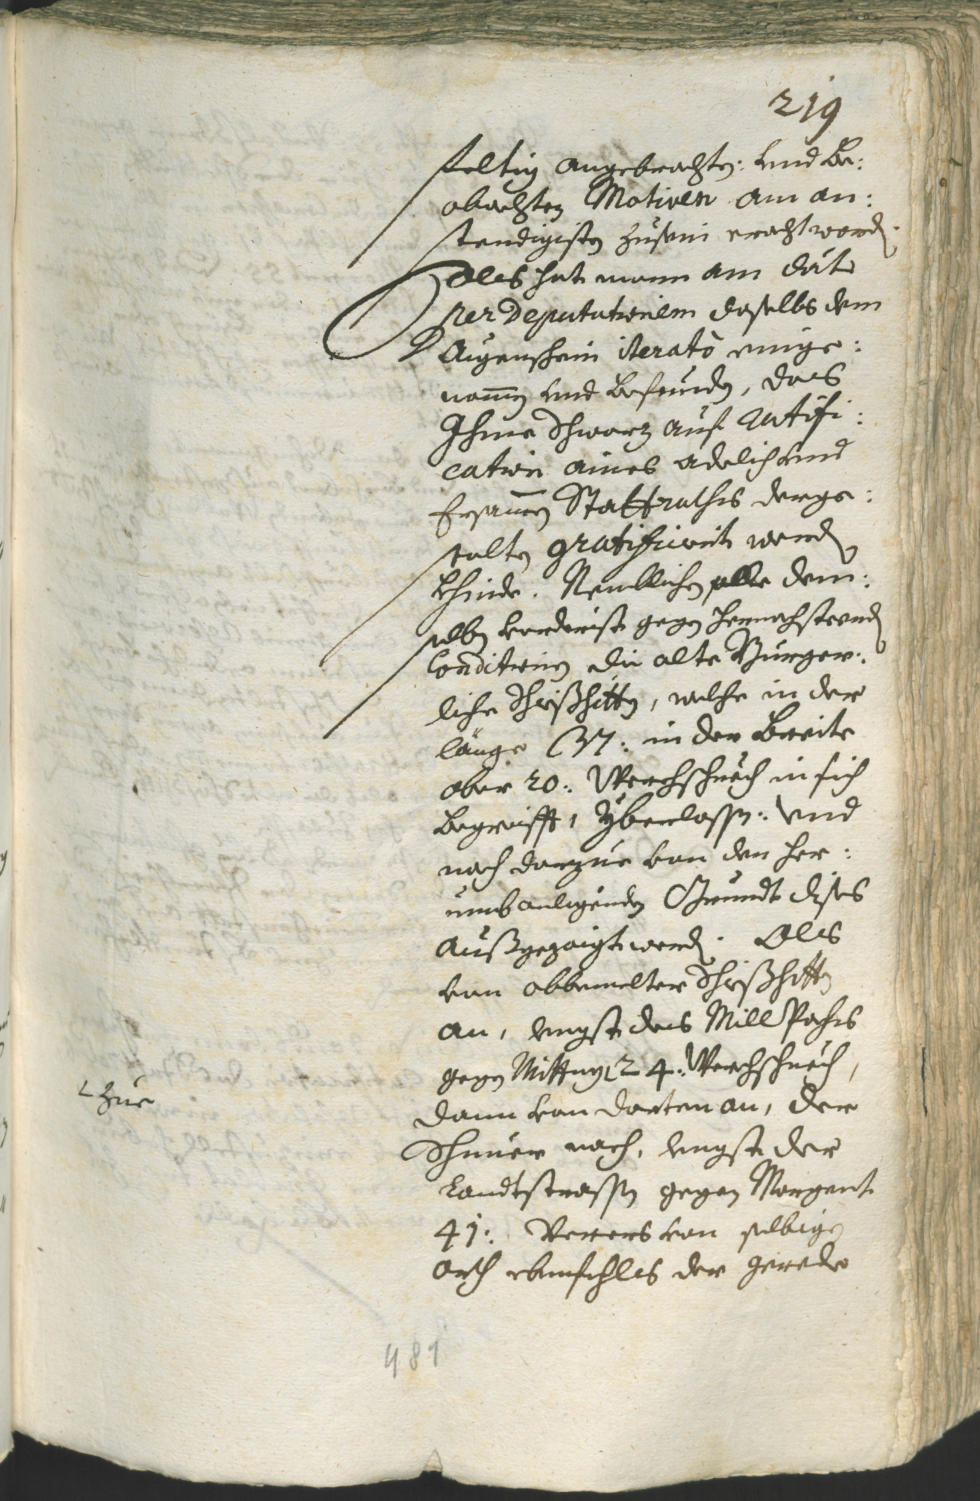 219
feltig angebrachten: und be:
obachten Motiven am an:
stendigisten zusein eracht word.
Als hat mann am dato
per Deputationem daselbs den
Augenschein iterato einge:
nommen und befunden, das
Ihme Schwarz auf ratifi:
cation aines adelich und
Ersamen Stattrathis derge:
stalten gratificiert werden
khinde. Nemblichen alle dem:
selben vorderist gegen hernachsteenden
Conditionen die alte Burger:
liche Schießhitten, welche in der
länge 37: in der Breite
aber 20: Werchschuech in sich
begreifft, yberlassen: und
nach darzue von den her:
umb anligenden Grundt dises
außgezaigt werden. Als
von obbemelter Schießhitten
an, lengst des Mill Pachs
gegen Mittag 24: Werchschuech,
zue
dann von dorten an, der
Schnuer nach, lengst der
Landtstrassen gegen Morgent
41: Verers von selbigen
Orth ebenfahls der gerede
481